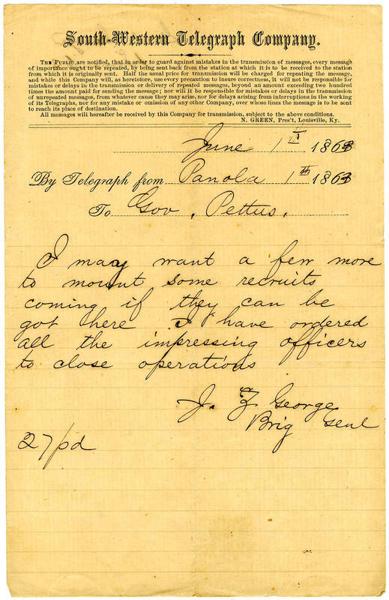 South-Western Telegraph Company.
The Public are notified, that in order to guard against mistakes in the transmission of messages, every message
of importance ought to be repeated, by being sent back from the station at which it is to be received to the station
from which it is originally sent. Half the usual price for transmission will be charged for repeating the message,
and while this Company will, as heretofore, use every precaution to insure correctness, it will not be responsible for
mistakes or delays in the transmission or delivery of repeated messages, beyond an amount exceeding two hundred
times the amount paid for sending the message; nor will it be responsible for mistakes or delays in the transmission
of unrepeated messages, from whatever cause they may arise, nor for delays arising from interruptions in the working
of its Telegraphs, nor for any mistake or omission of any other Company, over whose lines the message is to be sent
to reach its place of destination.
All messages hereafter be received by this Company for transmission, subject to the above conditions.
N. GREEN, Pres't, Louisville, Ky.
June 1st 1863
By Telegraph from Panola 1st 1863
To Gov. Pettus.
I may want a few more
to mount some recruits
coming if they can be
got here I have ordered
all the impressing officers
to close operations
J. Z George
Brig Genl
27 pd